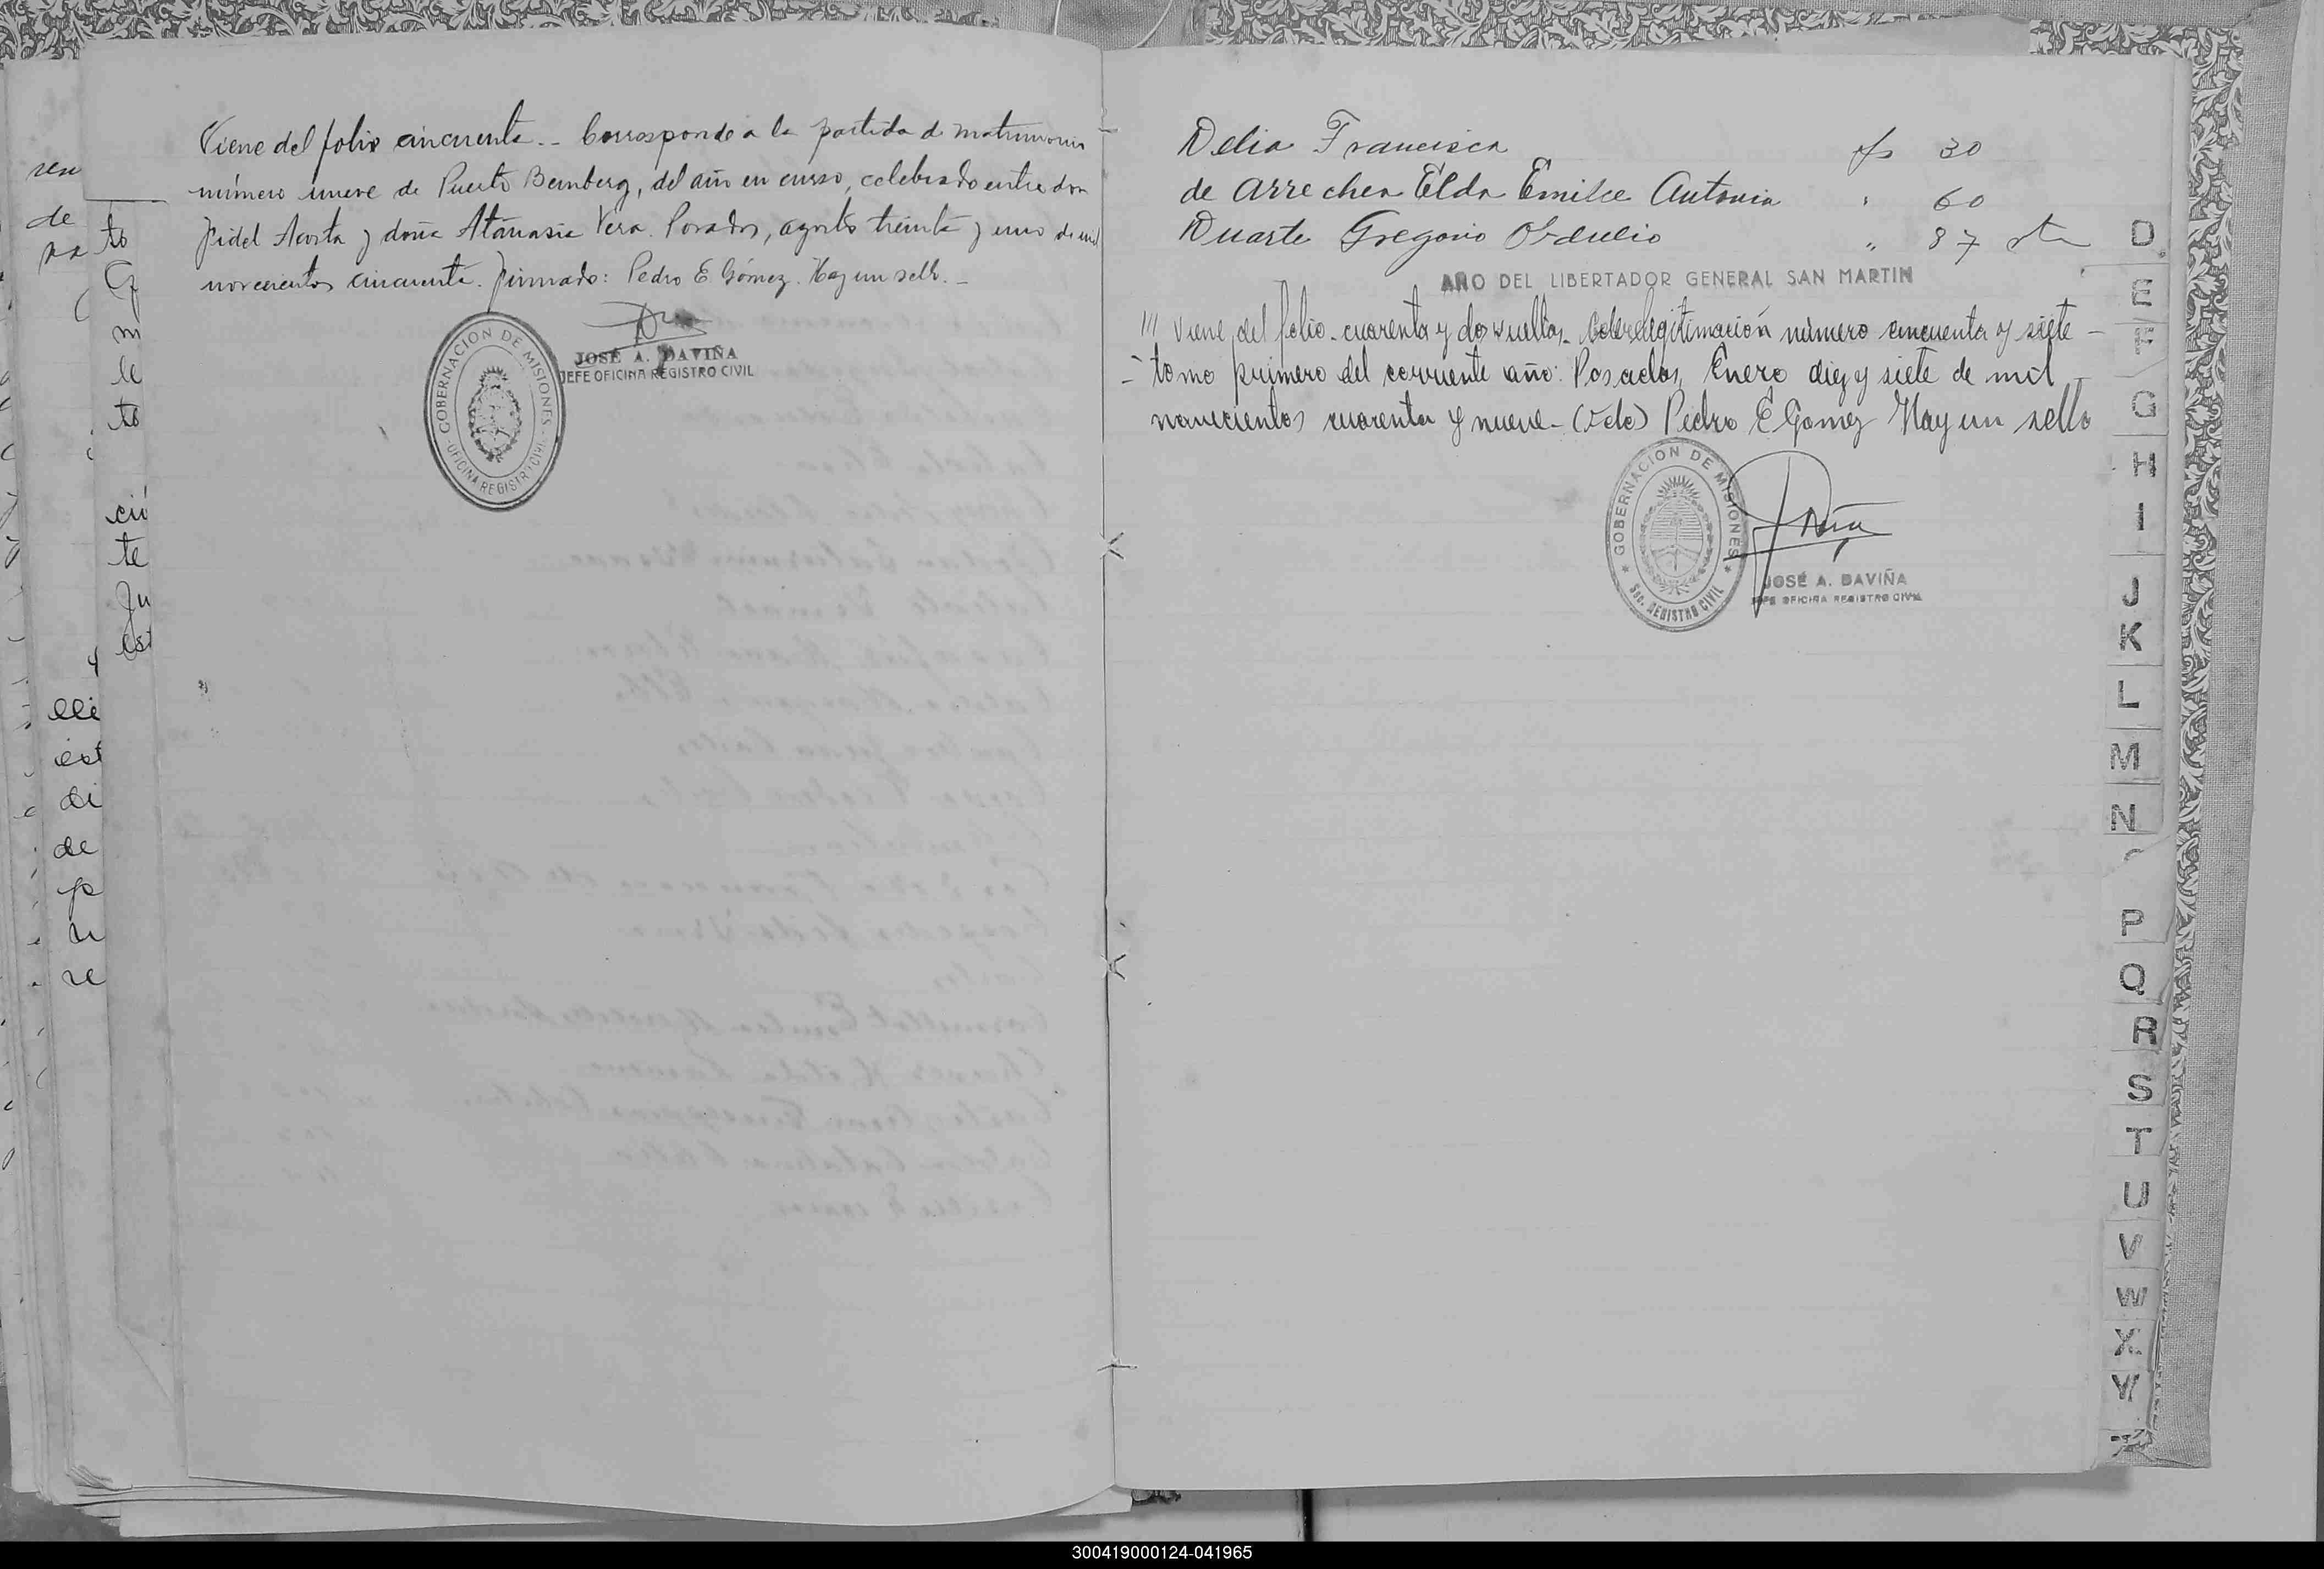 Viene del folio cincuenta.- Corresponde a la partida d matrimonio
número nueve de Puerto Bemberg, del año en curso, celebrado entre don
Fidel Acosta y doña Atanasia Vera. Posadas, agosto treinta y uno de mil
novecientos cincuenta. Firmado: Pedro E. Gómez. Hay un sello.-
JOSÉ A. DAVIÑA
JEFE OFICINA REGISTRO CIVIL
GOBERNACION DE MISIONES
OFICINA REGISTRO CIVIL
sen
de
to
m
le
to
te
Ju
est
di
de
p
re
Delia Francisca fs 30
de Arrechea Elda Emilce Antonia " 60
Duarte Gregorio Obdulio " 87
AÑO DEL LIBERTADOR GENERAL SAN MARTIN
/// Viene del folio cuarenta y dos vuelto. legitimación número cincuenta y siete -
- tomo primero del corriente año: Posadas, Enero diez y siete de mil
novecientos cuarenta y nueve - (Fdo) Pedro E Gomez Hay un sello
GOBERNACION DE MISIONES
Sec. REGISTRO CIVIL
JOSÉ A. DAVIÑA
JEFE OFICINA REGISTRO CIVIL
D
E
F
G
H
I
J
K
L
M
N
P
Q
R
S
T
U
V
W
X
Y
300419000124-041965